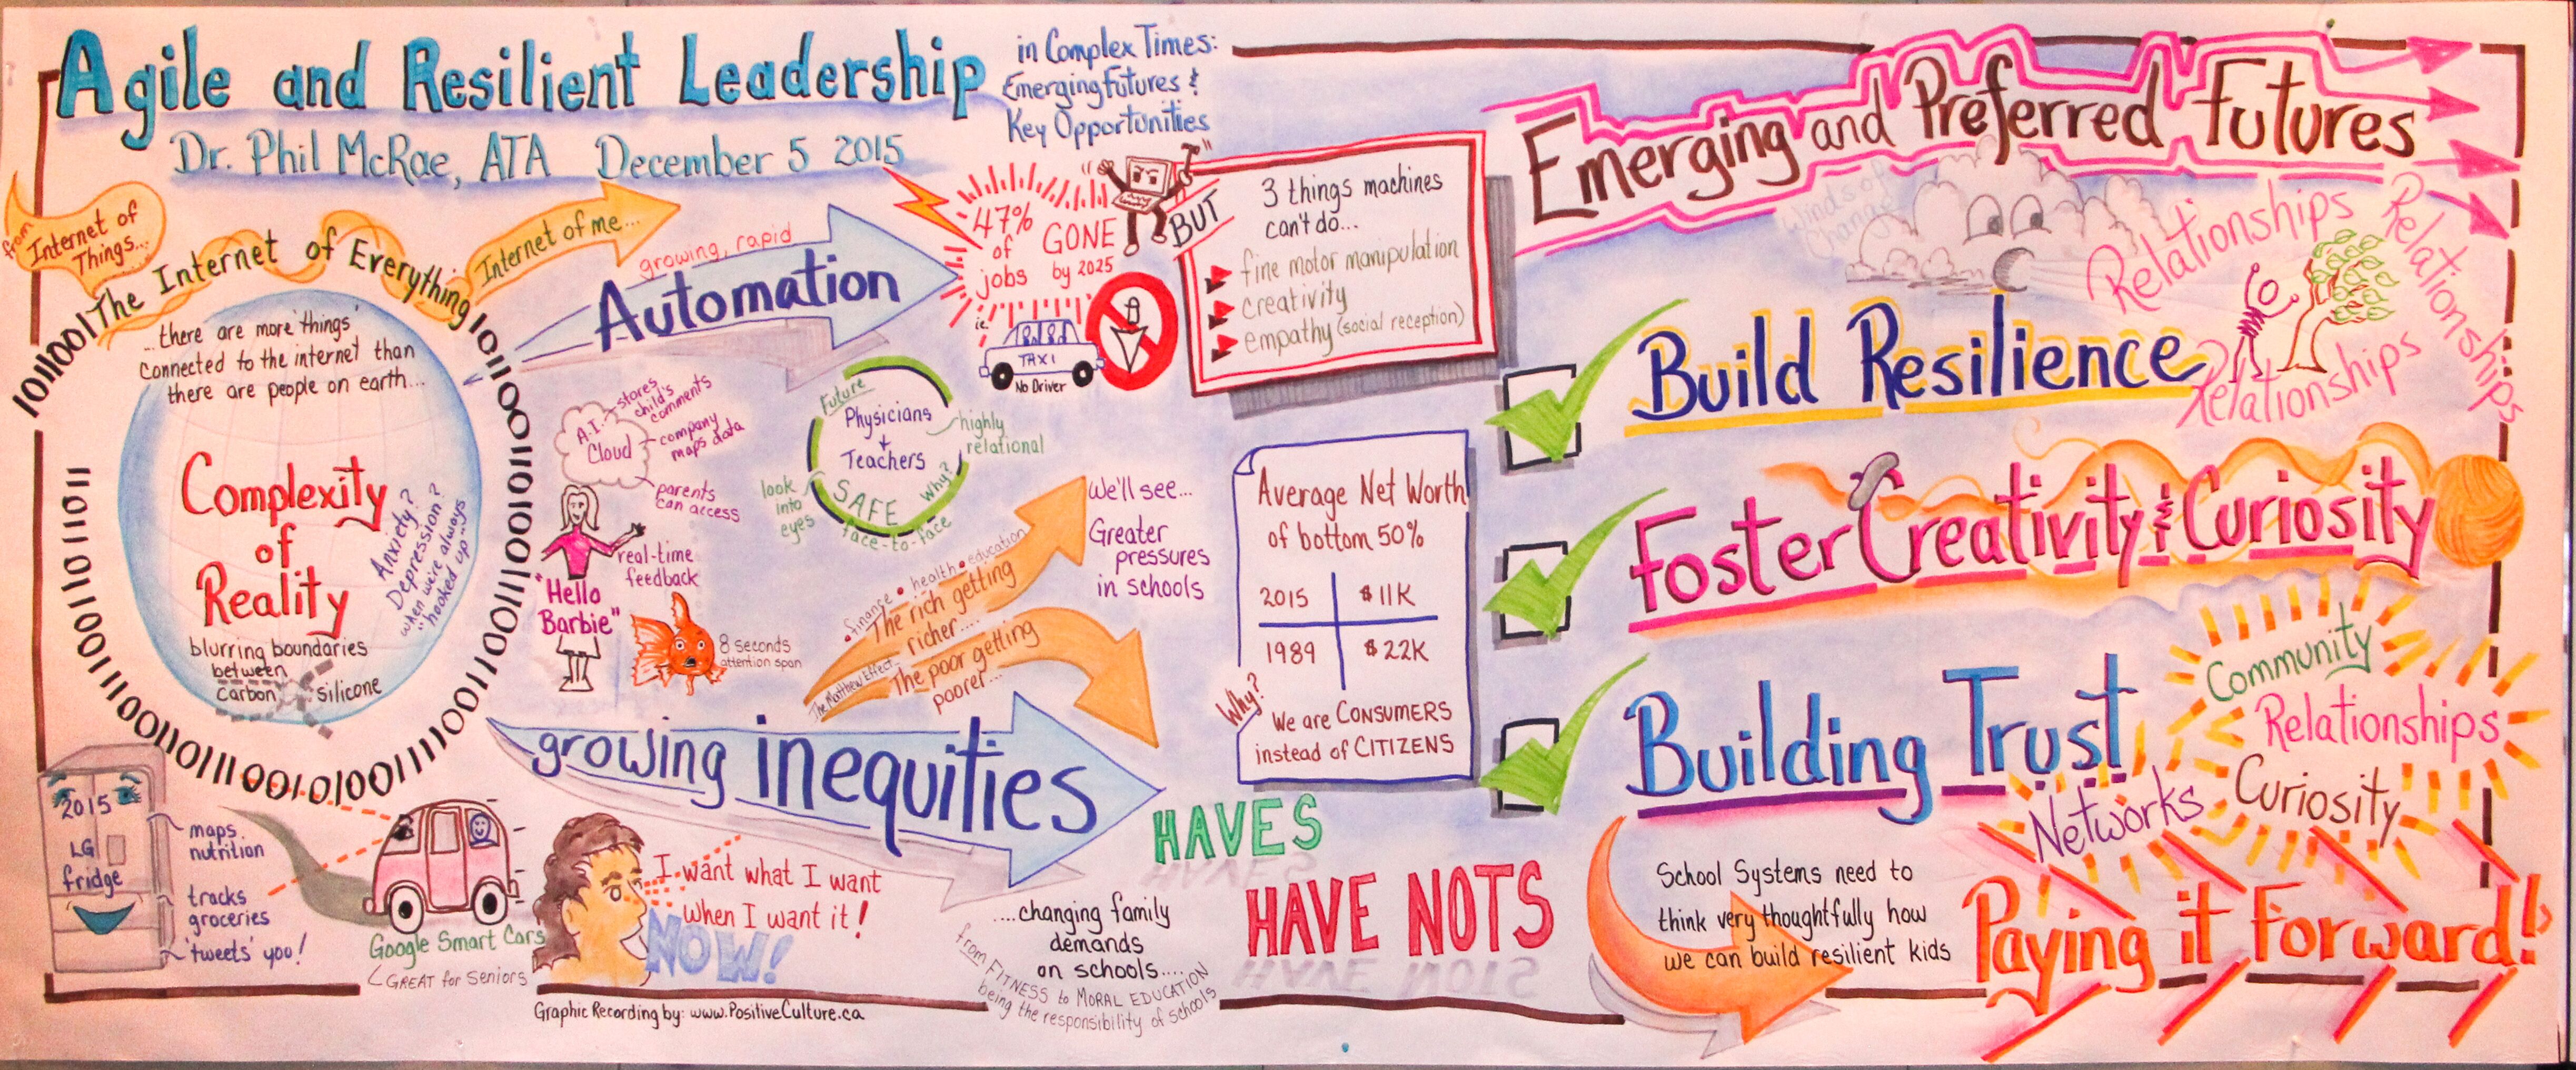 Agile and Resilient Leadership
in Complex Times:
Emerging Futures &
Key Opportunities
Dr. Phil McRae, ATA December 5 2015
from
Internet of
Things...
The Internet of Everything
Internet of me...
...there are more 'things'
connected to the internet than
there are people on earth...
Complexity
of
Reality
Anxiety?
Depression?
when we're always
"hooked up"
blurring boundaries
between
carbon silicone
2015
LG
fridge
maps
nutrition
tracks
groceries
'tweets' you!
Google Smart Cars
GREAT for Seniors
growing, rapid
Automation
47%
of
jobs
GONE
by 2025
ie.
TAXI
No Driver
BUT
3 things machines
can't do...
fine motor manipulation
creativity
empathy (social reception)
A.I.
Cloud
stores
child's
comments
company
maps data
parents
can access
real-time
feedback
"Hello
Barbie"
8 seconds
attention span
Future
Physicians
+
Teachers
SAFE
Why?
highly
relational
look
into
eyes
face-to-face
• finance • health • education
The rich getting
richer....
The Matthew Effect...
The poor getting
poorer...
We'll see...
Greater
pressures
in schools
growing inequities
I want what I want
when I want it!
NOW!
HAVES
HAVE NOTS
....changing family
demands
on schools....
from FITNESS to MORAL EDUCATION
being the responsibility of schools
Average Net Worth
of bottom 50%
2015 $11K
1989 $22K
Why?
We are CONSUMERS
instead of CITIZENS
Graphic Recording by: www.PositiveCulture.ca
Emerging and Preferred Futures
Winds of
Change
Relationships
Relationships
Relationships
Build Resilience
Foster Creativity & Curiosity
Building Trust
Community
Relationships
Curiosity
Networks
School Systems need to
think very thoughtfully how
we can build resilient kids
Paying it Forward!